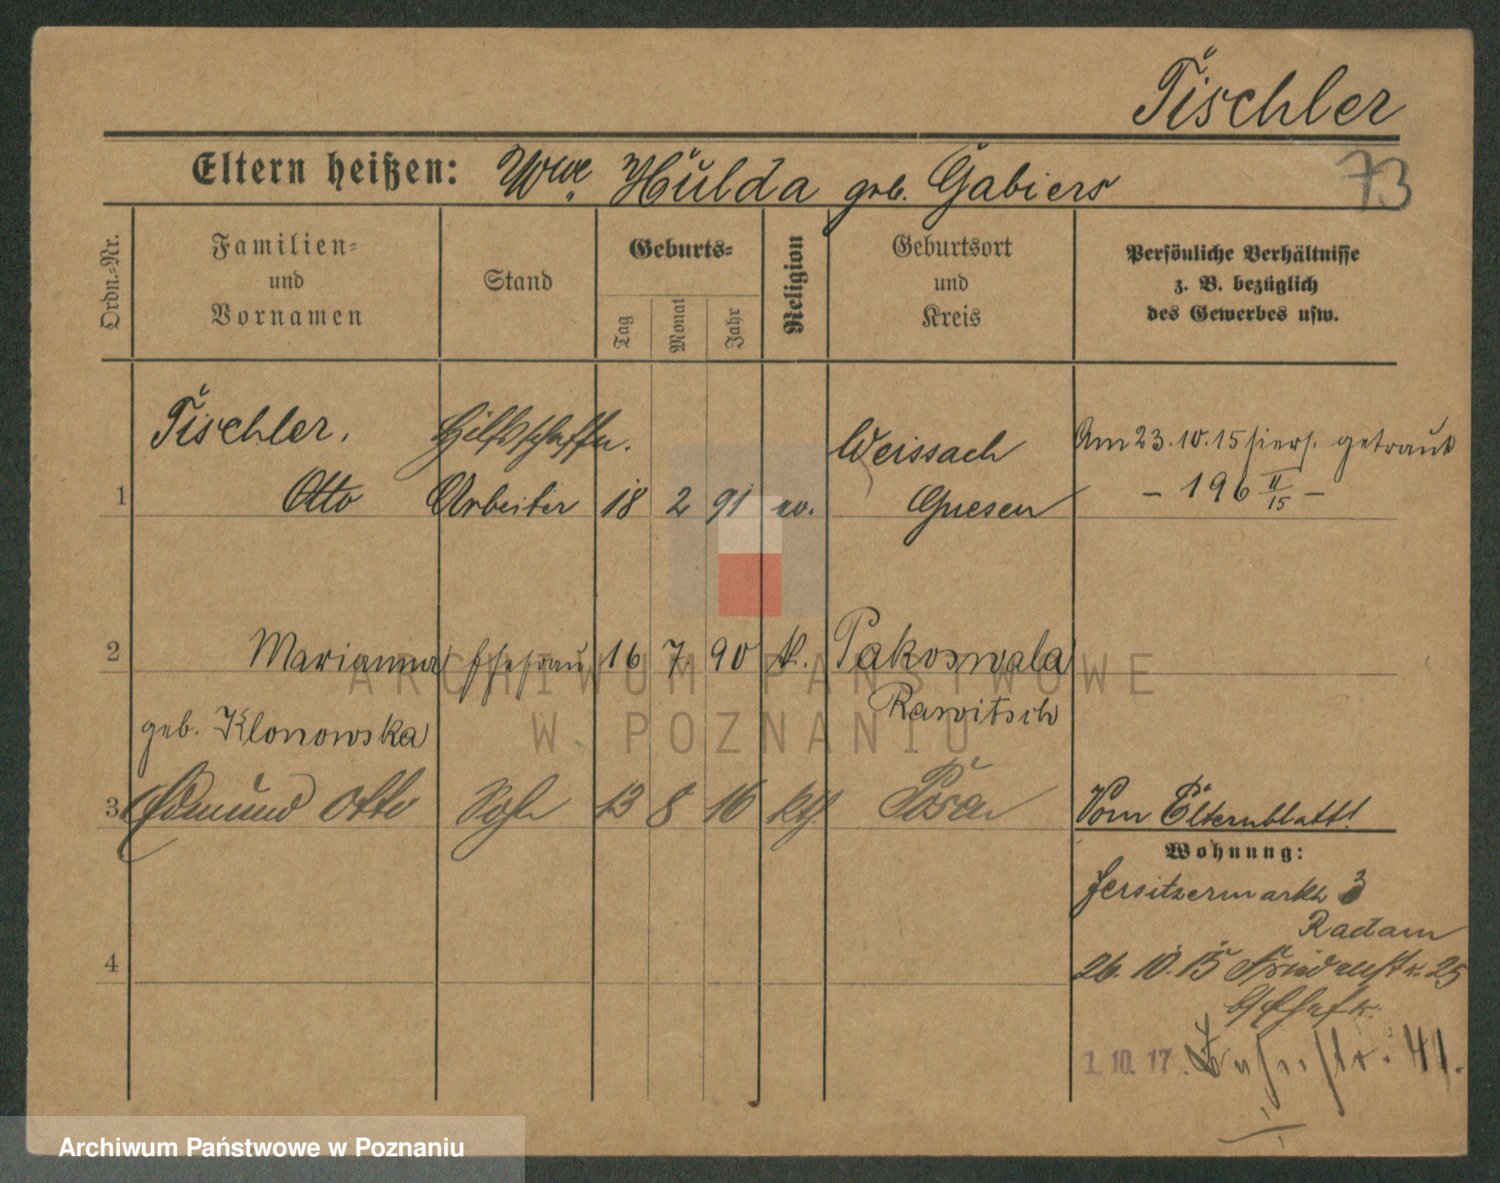 Tischler
Eltern heißen: Wwe Hulda geb. Gabiers
73
Ordn.-Nr.
Familien-
und
Vornamen
Stand
Geburts-
Tag
Monat
Jahr
Religion
Geburtsort
und
Kreis
Persönliche Verhältnisse
z. B. bezüglich
des Gewerbes usw.
Tischler, Hilfsschaffn. Weissach Am 23.10.15 hiers. getraut
1 Otto Arbeiter 18 2 91 ev. Gnesen - 196 II/15 -
2 Marianna Ehefrau 16 7 90 k. Pakoswala
geb. Klonowska Rawitsch
3 Edmund Otto Sohn 13 8 16 kth. Posen Vom Elternblatt!
Wohnung:
Jersitzermarkt 3
Radam
4
26.10.15 25
1.10.17. 41.
ARCHIWUM PAŃSTWOWE
W POZNANIU
Archiwum Państwowe w Poznaniu